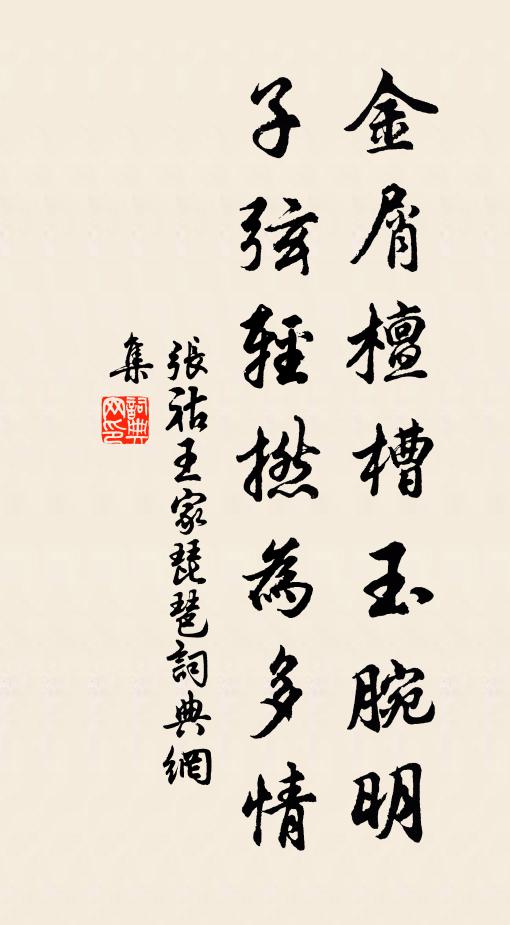 金屑檀槽玉腕明
子弦輕撚為多情
張祜王家琵琶詞典網
集
詞典网印